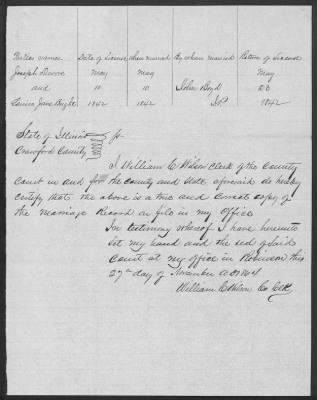 Parties names Date of License When married By whom married Return of License
Joseph Devore May May May
and 10 10 John Boyd 23
Jane 1842 1842 J.P. 1842
State of Illinois
Crawford County ss.
I William C Wilson clerk of the County
Court in and for the county and state aforesaid do hereby
certify that the above is a true and correct copy of
the Marriage Record on file in my Office
In testimony whereof I have hereunto
set my hand and the seal of said
Court at my office in Robinson this
27th day of November AD 1864
William C Wilson Co Clk